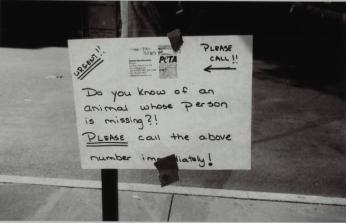 URGENT!!
PETA
PLEASE
CALL!!
Do you know of an
animal whose person
is missing?!
PLEASE call the above
number immediately!